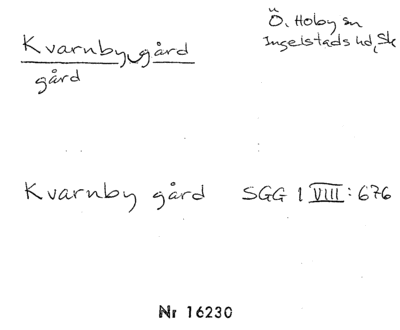 Kvarnby gård
gård
Ö. Hoby sn
Ingelstads hd, Sk
Kvarnby gård SGG 1 VIII: 676
Nr 16230